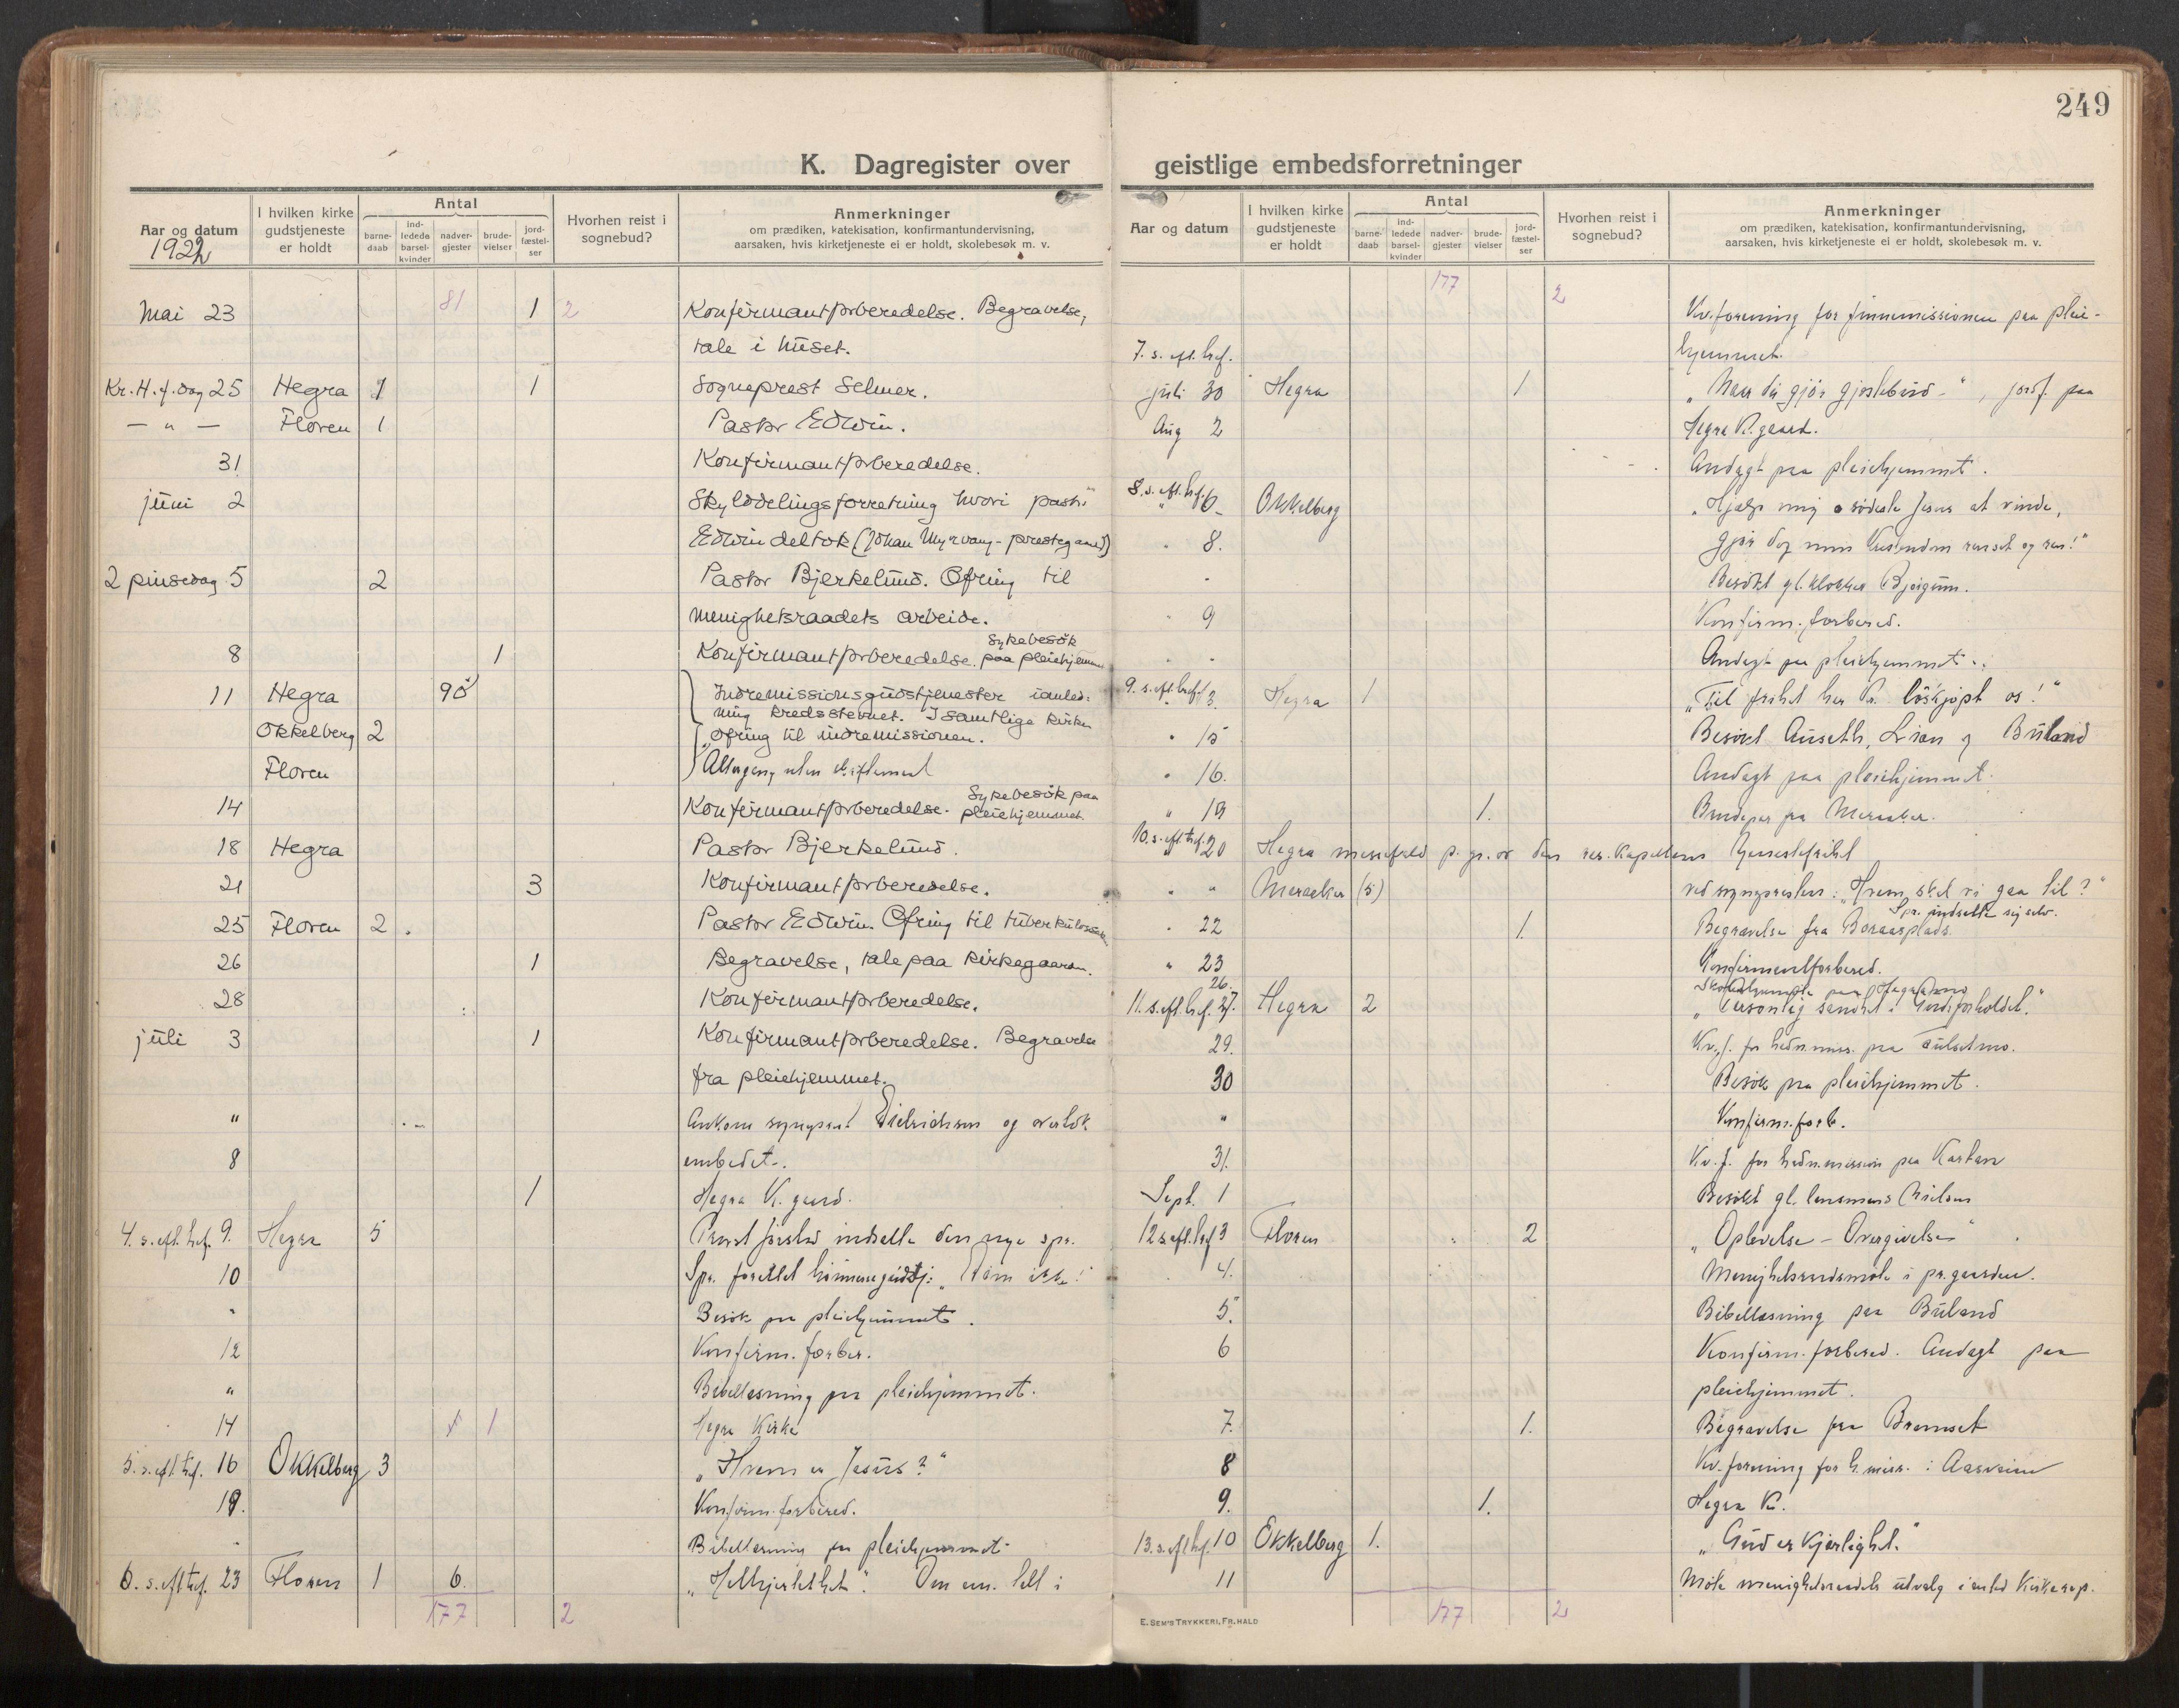 249
K. Dagregister over geistlige embedsforretninger
Aar og datum
1922
I hvilken kirke gudstjeneste er holdt
Antal
barne-daab
ind-ledede barsel-kvinder
nadver-gjester
brude-vielser
jord-fæstel-ser
Hvorhen reist i sognebud?
Anmerkninger
om prædiken, katekisation, konfirmantundervisning,
aarsaken, hvis kirketjeneste ei er holdt, skolebesøk m. v.
Mai 23 81 1 2 Konfirmantforberedelse. Begravelse,
tale i huset.
Kr. H. f. dag 25 Hegra 1 1 Sogneprest Selmer.
— " — Floren 1 Pastor Edwin.
31 Konfirmantforberedelse.
juni 2 Skylddelingsforretning hvori pastor
Edwin deltok (Johan Myrvang - prestegaard)
2 pinsedag 5 2 Pastor Bjerkelund. Ofring til
menighetsraadets arbeide.
8 1 Konfirmantforberedelse. Sykebesök paa pleiehjemmet
11 Hegra 90 Indremissionsgudstjenester i anled-
ning kredsstevnet. I samtlige kirker
Okkelberg 2 ofring til indremissionen.
Floren Altergang uten skriftemaal
14 Konfirmantforberedelse. Sykebesök paa pleiehjemmet
18 Hegra Pastor Bjerkelund.
21 3 Konfirmantforberedelse.
25 Floren 2 Pastor Edwin. Ofring til tuberkulosesak.
26 1 Begravelse, tale paa kirkegaarden.
28 Konfirmantforberedelse.
juli 3 1 Konfirmantforberedelse. Begravelse
fra pleiehjemmet.
" Ankom sogneprest Dietrichson og overtok
8 embedet.
1 Hegra K. gaard.
4. s. eft. tref. 9. Hegra 5 Prost Jörstad indsatte den nye spr.
10 Spr. forettet : " döm ikke!
" Besök paa pleiehjemmet.
12 Konfirm. forber.
" Bibellæsning paa pleiehjemmet.
14 1 Hegra Kirke
5. s. eft. tref. 16 Okkelberg 3 "Hvem er Jesus?"
19. Konfirm. forbered.
" Bibellæsning paa pleiehjemmet
6. s. eft. tref. 23 Floren 1 6. "Helhjertethet". Om em. holdt i
177 2
Aar og datum
I hvilken kirke gudstjeneste er holdt
Antal
barne-daab
ind-ledede barsel-kvinder
nadver-gjester
brude-vielser
jord-fæstel-ser
Hvorhen reist i sognebud?
Anmerkninger
om prædiken, katekisation, konfirmantundervisning,
aarsaken, hvis kirketjeneste ei er holdt, skolebesøk m. v.
177 2 Kv. forening for finnemissionen paa pleie-
7. s. eft. tref. hjemmet.
juli 30 Hegra 1 "Naar du gjör gjestebud -", jordf. paa
Aug 2 Hegra K. gaard.
Andagt paa pleiehjemmet.
8. s. eft. tref. 6. Okkelberg "Hjælp mig o södeste Jesus at vinde,
" 8. gjör dog min renset og ren!"
" Besökt gl. klokker Bjørgum.
" 9 Konfirm. forbered.
" " Andagt paa pleiehjemmet.
9. s. eft. tref. 13. Hegra 1 "Til frihet har Kr. löskjöpt os!"
" 15 Besökt Auseth, Lian og Buland
" 16. Andagt paa pleiehjemmet.
" 19 1. Brudepar fra Meraaker.
10. s. eft. tref. 20 Hegra messefald p. gr. av den res. kapellans tjenestefrihet
" " Meraaker (5) ved sognepresten: "Hvem skal vi gaa til?"
Spr. indsatte sig selv.
" 22 1. Begravelse fra Boraasplads
" 23 Konfirmantforbered.
26.
11. s. eft. tref. 27. Hegra 2 "Personlig sandhet i Gudsforholdet."
29. Kv. f. for hedn. miss. paa Fulsetmo.
30 Besök paa pleiehjemmet.
" Konfirm. forb.
31. Kv. f. for hedn. mission paa Kartan
Sept. 1 Besökt gl. lensmand Nielsen
12 s. eft. tref. 3 Floren 2 "Oplevelse - Overgivelse"
4. Menighetsraadsmöte i pr. gaarden.
5. Bibellæsning paa Buland
6 Konfirm. forbered. Andagt paa
pleiehjemmet.
7. 1. Begravelse fra Bremset
8 Kv. forening for h. miss. i Aasveien
9. 1. Hegra K.
13. s. eft. tref. 10 Okkelberg 1. "Gud er Kjærlighet."
11 Möte menighetsraadets utvalg i anled Kirkerep.
177 2
E. SEM'S TRYKKERI, FR.HALD